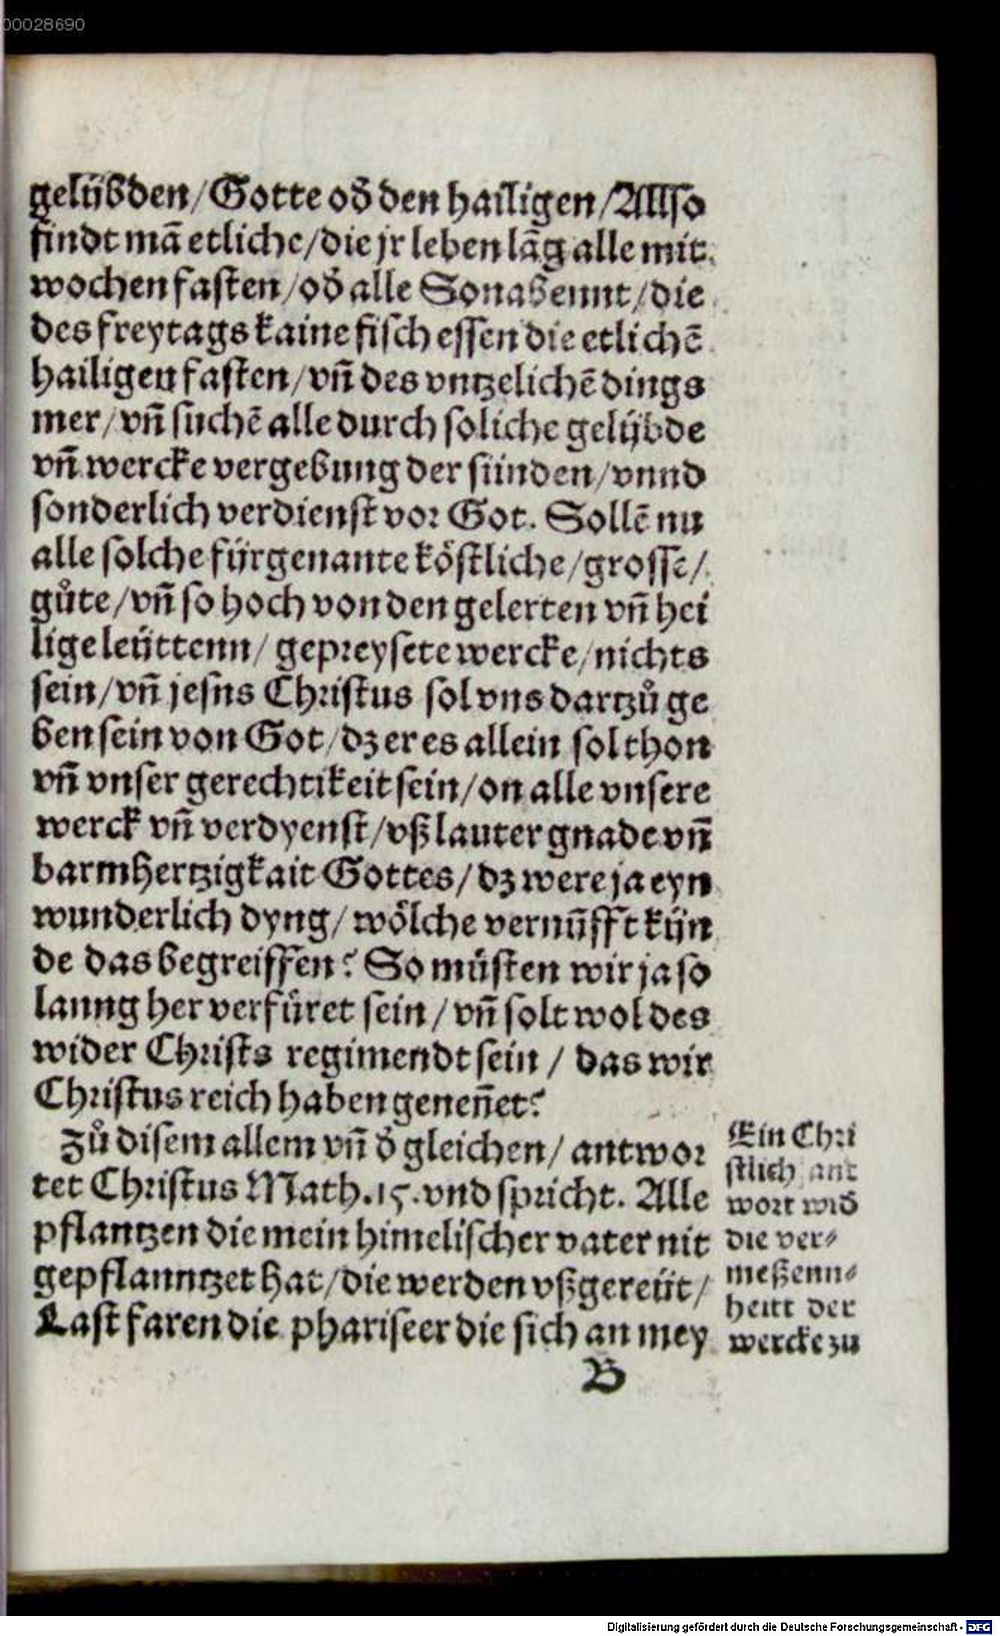 00028690
gelÿbden/Gotte od̄ den hailigen/Allso
findt mā etliche/die jr leben lāg alle mit
wochen fasten/od̄ alle Sonabennt/die
des freytags kaine fisch essen die etlichē
hailigen fasten/vn̄ des vntzelichē dings
mer/vn̄ suchē alle durch soliche gelÿbde
vn̄ wercke vergebung der sünden/vnnd
sonderlich verdienst vor Got. Sollē nu
alle solche fÿrgenante köstliche/grosse/
gůte/vn̄ so hoch von den gelerten vn̄ hei
lige leüttenn/ gepreysete wercke/nichts
sein/vn̄ jesus Christus sol vns dartzů ge
ben sein von Got/dz er es allein sol thon
vn̄ vnser gerechtikeit sein/on alle vnsere
werck vn̄ verdyenst/vß lauter gnade vn̄
barmhertzigkait Gottes/dz were ja eyn
wunderlich dyng/wölche vernūfft kÿn
de das begreiffen? So müsten wir ja so
lanng her verfüret sein/vn̄ solt wol des
wider Christs regimendt sein/ das wir
Christus reich haben genen̄et?
Zů disem allem vn̄ d̄ gleichen/antwor
tet Christus Math.15.vnd spricht. Alle
pflantzen die mein himelischer vater nit
gepflanntzet hat/die werden vßgereüt/
Last faren die phariseer die sich an mey
B
Ein Chri
stlich ant
wort wid̄
die ver⸗
meßenn⸗
heitt der
wercke zu
Digitalisierung gefördert durch die Deutsche Forschungsgemeinschaft - DFG